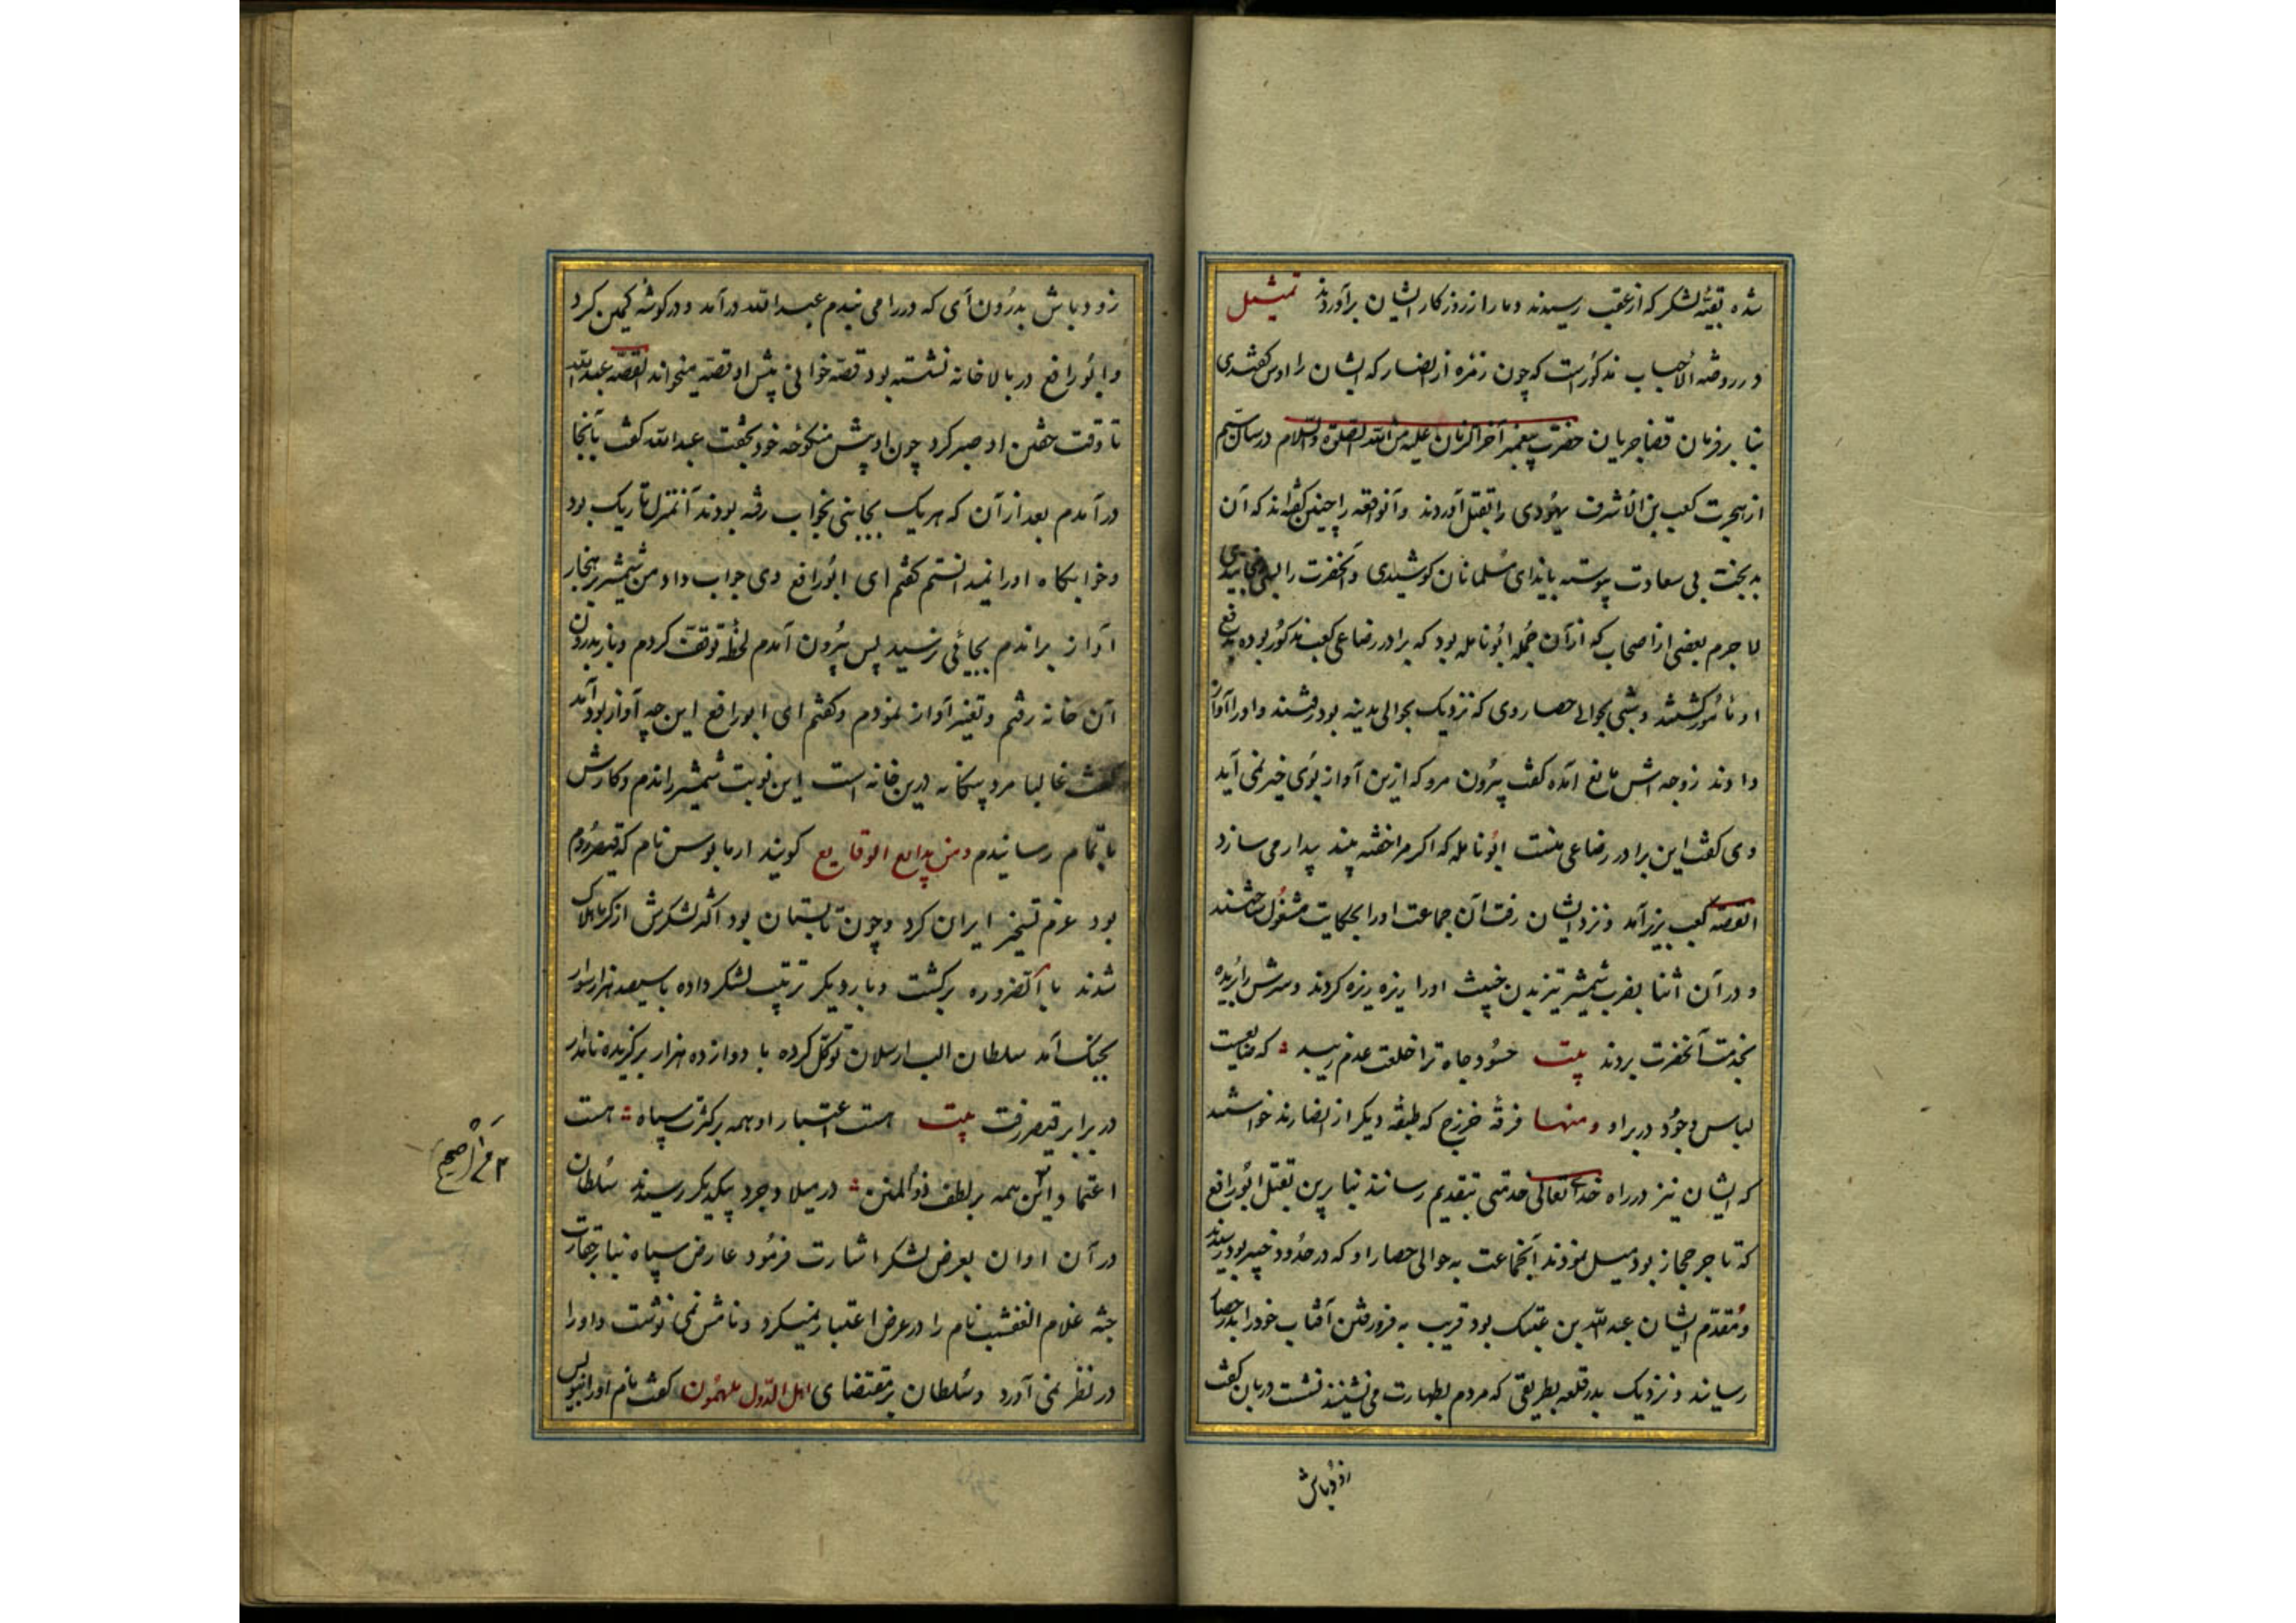 شده بقیّه لشکر که از عقب رسیدند دمار از روزکار ایشان برآوردند تمثیل
در روضه الاحباب مذکورست که چون زمره از انصار که ایشان را اوس کفتندی
بنا بر فرمان قضا جریان حضرت پیغمبر آخر الزمان علیه من الله الصلوة والسلام در سال سیم
از هجرت کعب بن الاشرف یهودی را بقتل آوردند و آنواقعه را چنین کفته‌اند که آن
بدبخت بی سعادت پیوسته بایذای مسلمانان کوشیدی و آنحضرت را
لا جرم بعضی از اصحاب که از آن جمله ابونامله بود که برادر رضاعی کعب مذکور بوده بدفع
او مامور کشتند و شبی بحوالی حصار وی که نزدیک بحوالی مدینه بود رفتند و او را آواز
دادند زوجه اش مانع آمده کفت بیرون مرو که ازین آواز بوی خیر نمی آید
وی کفت این برادر رضاعی منست ابونامله که اکر مرا خفته بیند بیدار می سازد
القصه کعب بزیر آمد و نزد ایشان رفت آن جماعت او را بحکایت مشغول ساختند
و در آن اثنا بضرب شمشیر تیز بدن خبیث او را ریزه ریزه کردند و سرش را بریده
بخدمت آنحضرت بردند بیت حسود جاه ترا خلعت عدم زیبد که
لباس وجود در بر او ومنها فرقهٔ خزرج که طبقهٔ دیکر از انصارند خواستند
که ایشان نیز در راه خدای تعالی خدمتی بتقدیم رسانند بنا برین بقتل ابورافع
که تاجر حجاز بود میل نمودند آنجماعت به حوالی حصار او که در حدود خیبر بود رسیدند
و مقدّم ایشان عبدالله بن عتیک بود قریب به فرو رفتن آفتاب خود را بدر حصار
رسانید و نزدیک بدر قلعه بطریقی که مردم بطهارت می نشینند نشست دربان کفت
زود باش
زود باش بدرون آی که در را می بندم عبدالله درآمد و در کوشه کمین کرد
و ابورافع در بالا خانه نشسته بود قصه خوانی پیش او قصه میخواند القصه عبدالله
تا وقت خفتن او صبر کرد چون او پیش منکوحه خود بخفت عبدالله کفت بآنجا
درآمدم بعد از آن که هر یک بجانبی بخواب رفته بودند آنمنزل تاریک بود
و خوابکاه او را نمیدانستم کفتم ای ابورافع وی جواب داد من شمشیر بهنجار
آواز براندم بجائی نرسید پس بیرون آمدم لحظهٔ توقف کردم و باز بدرون
آن خانه رفتم و تغییر آواز نمودم و کفتم ای ابورافع این چه آواز بود آمد
کفت غالبا مرد بیکانه درین خانه است این نوبت شمشیر راندم و کارش
باتمام رسانیدم ومن بدایع الوقایع کویند ارمانوس نام که قیصر روم
بود عزم تسخیر ایران کرد و چون تابستان بود اکثر لشکرش از کرما هلاک
شدند بالضروره برکشت و بار دیکر ترتیب لشکر داده با سیصد هزار سوار
بجنک آمد سلطان الب ارسلان توکل کرده با دوازده هزار برکزیده نامدار
در برابر قیصر رفت بیت هست اعتبار او همه بر کثرت سپاه هست
اعتماد و این همه بر لطف ذوالمنن در میلاد جرد بیکدیکر رسیدند سلطان
در آن اوان بعرض لشکر اشارت فرمود عارض سپاه بنا بر حقارت
جثه غلام نام را در عرض اعتبار نمیکرد و نامش نمی نوشت و او را
در نظر نمی آورد و سلطان بر مقتضای اهل الدّول ملهمون کفت نام او را بنویس